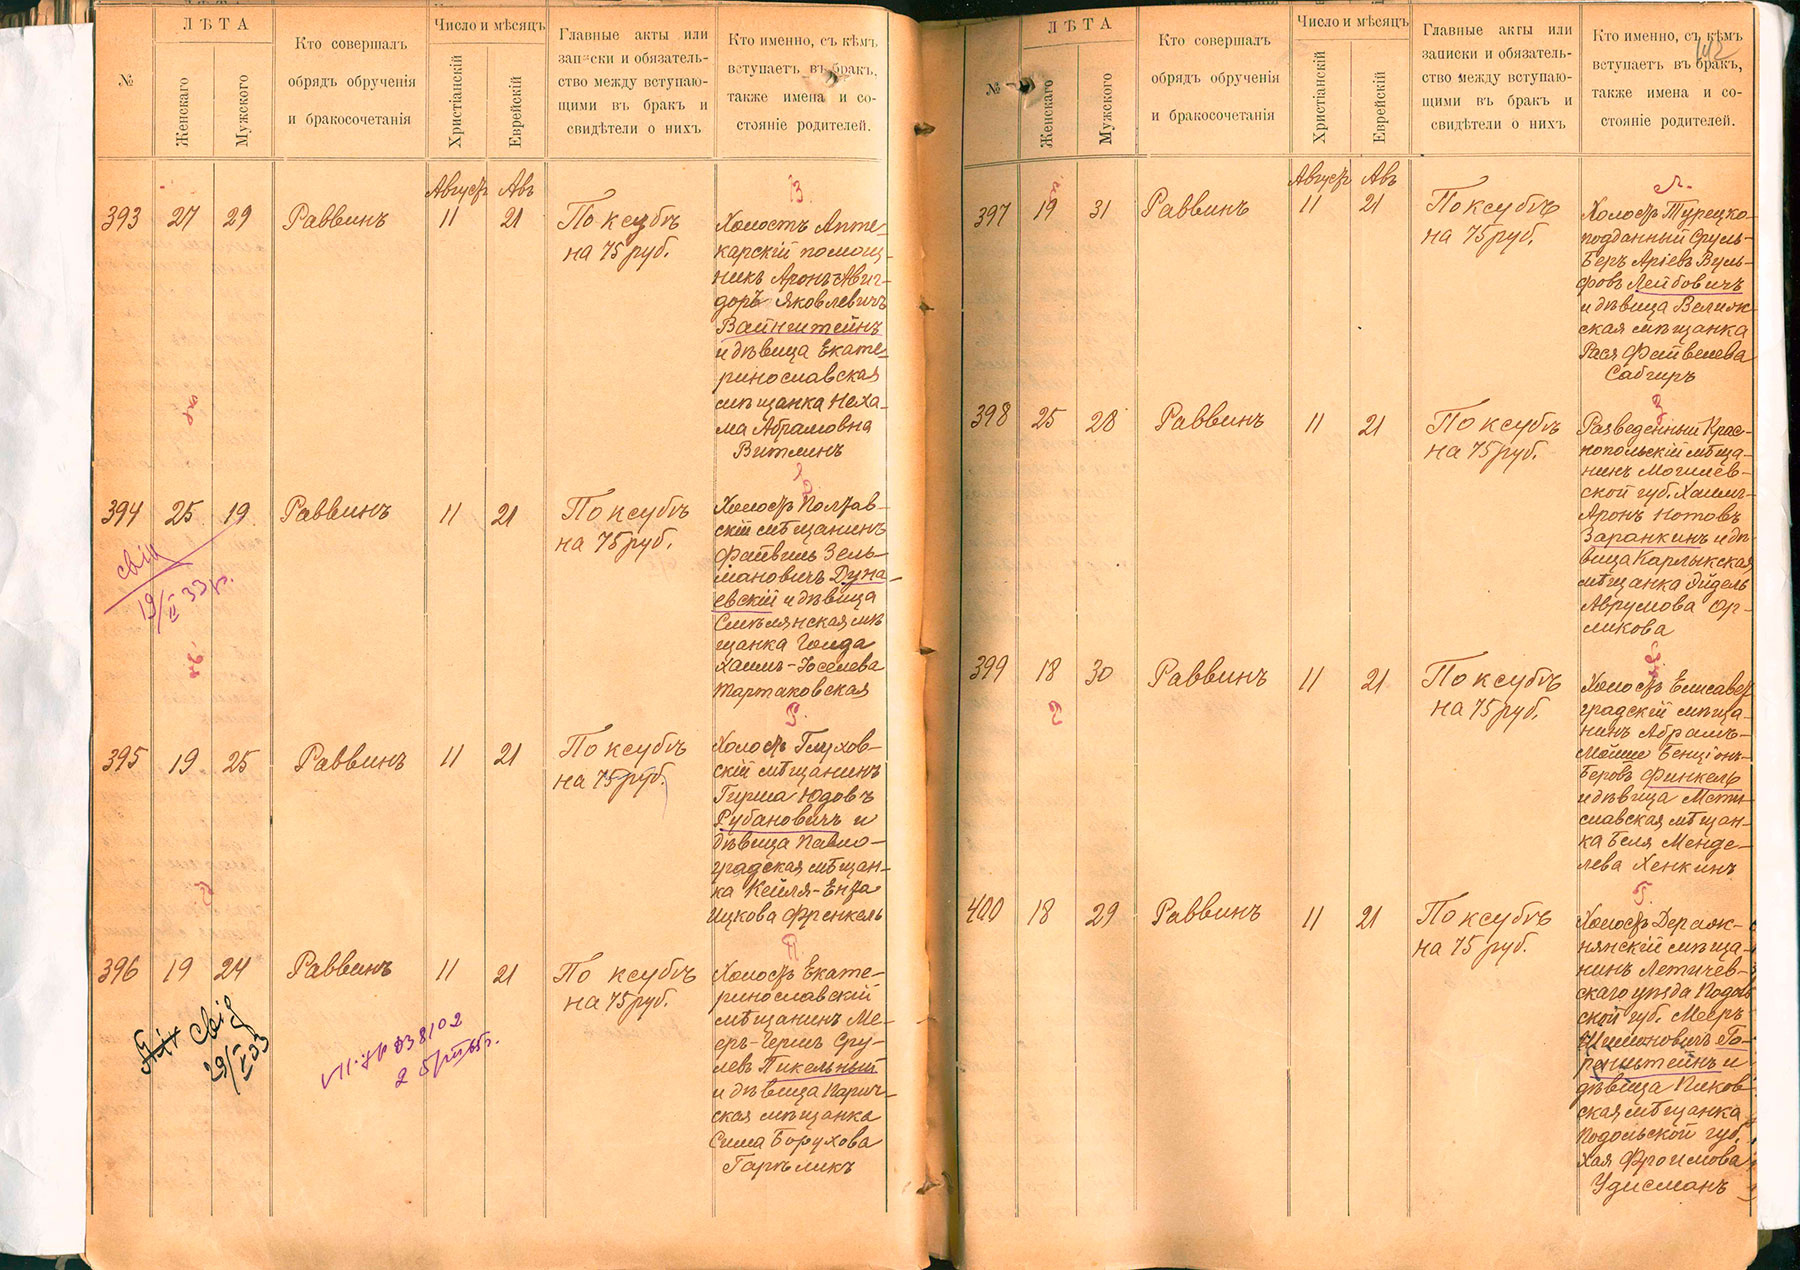 ЛѢТА
№
Женскаго
Мужского
Кто совершалъ
обрядъ обрученія
и бракосочетанія
Число и мѣсяцъ
Христіанскій
Еврейскій
Главные акты или
записки и обязатель-
ство между вступаю-
щими въ бракъ и
свидѣтели о нихъ
Кто именно, съ кѣмъ
вступаетъ въ бракъ,
также имена и со-
стояніе родителей.
Августъ Авъ
393 27 29 Раввинъ 11 21
По ксубѣ
на 75 руб.
Холостъ Апте-
карскій помощ-
никъ Аронъ-Авиг-
доръ Яковлевичъ
Вайнштейнъ
и дѣвица Екате-
ринославская
мѣщанка Неха-
ма Абрамовна
Витлинъ
394 25 19 Раввинъ 11 21
По ксубѣ
на 75 руб.
Холостъ Полтав-
скій мѣщанинъ
Файвиль Зель-
мановичъ Дуна-
евскій и дѣвица
Смѣлянская мѣ-
щанка Голда
Хаимъ-Іоселева
Тартаковская
19/II 33 г.
395 19 25 Раввинъ 11 21
По ксубѣ
на 75 руб.
Холостъ Глухов-
скій мѣщанинъ
Гирша Юдовъ
Рубановичъ и
дѣвица Павло-
градская мѣщан-
ка Кейля-Ента
Ицкова Френкель
396 19 24 Раввинъ 11 21
По ксубѣ
на 75 руб.
Холостъ Екате-
ринославскій
мѣщанинъ Ме-
еръ-Гершъ Сру-
левъ Пикельный
и дѣвица Парич-
ская мѣщанка
Сима Борухова
Гарѣликъ
ЛѢТА
№
Женскаго
Мужского
Кто совершалъ
обрядъ обрученія
и бракосочетанія
Число и мѣсяцъ
Христіанскій
Еврейскій
Главные акты или
записки и обязатель-
ство между вступаю-
щими въ бракъ и
свидѣтели о нихъ
Кто именно, съ кѣмъ
вступаетъ въ бракъ,
также имена и со-
стояніе родителей.
Августъ Авъ
397 19 31 Раввинъ 11 21
По ксубѣ
на 75 руб.
Л.
Холостъ Турецко-
подданный Сруль-
Беръ Аріевъ Вуль-
фовъ Лейбовичъ
и дѣвица Велиж-
ская мѣщанка
Рася Файвелева
Сабгиръ
398 25 28 Раввинъ 11 21
По ксубѣ
на 75 руб.
З
Разведенный Крас-
нопольскій мѣща-
нинъ Могилев-
ской губ. Хаимъ-
Аронъ Нотовъ
Заранкинъ и дѣ-
вица Карлыкская
мѣщанка Эйдель
Аврумова Ор-
ликова
399 18 30 Раввинъ 11 21
По ксубѣ
на 75 руб.
Холостъ Елисавет-
градскій мѣща-
нинъ Абрамъ-
Мойше Бенціонъ-
Беровъ Финкель
и дѣвица Мсти-
славская мѣщан-
ка Беля Менде-
лева Хенкинъ
400 18 29 Раввинъ 11 21
По ксубѣ
на 75 руб.
Г.
Холостъ Деражн-
нянскій мѣща-
нинъ Летичев-
скаго уѣзда Подол
ской губ. Мееръ-
Шимоновичъ Го-
ренштейнъ и
дѣвица Пиков-
ская мѣщанка
Подольской губ.
Хая Фроимова
Удисманъ